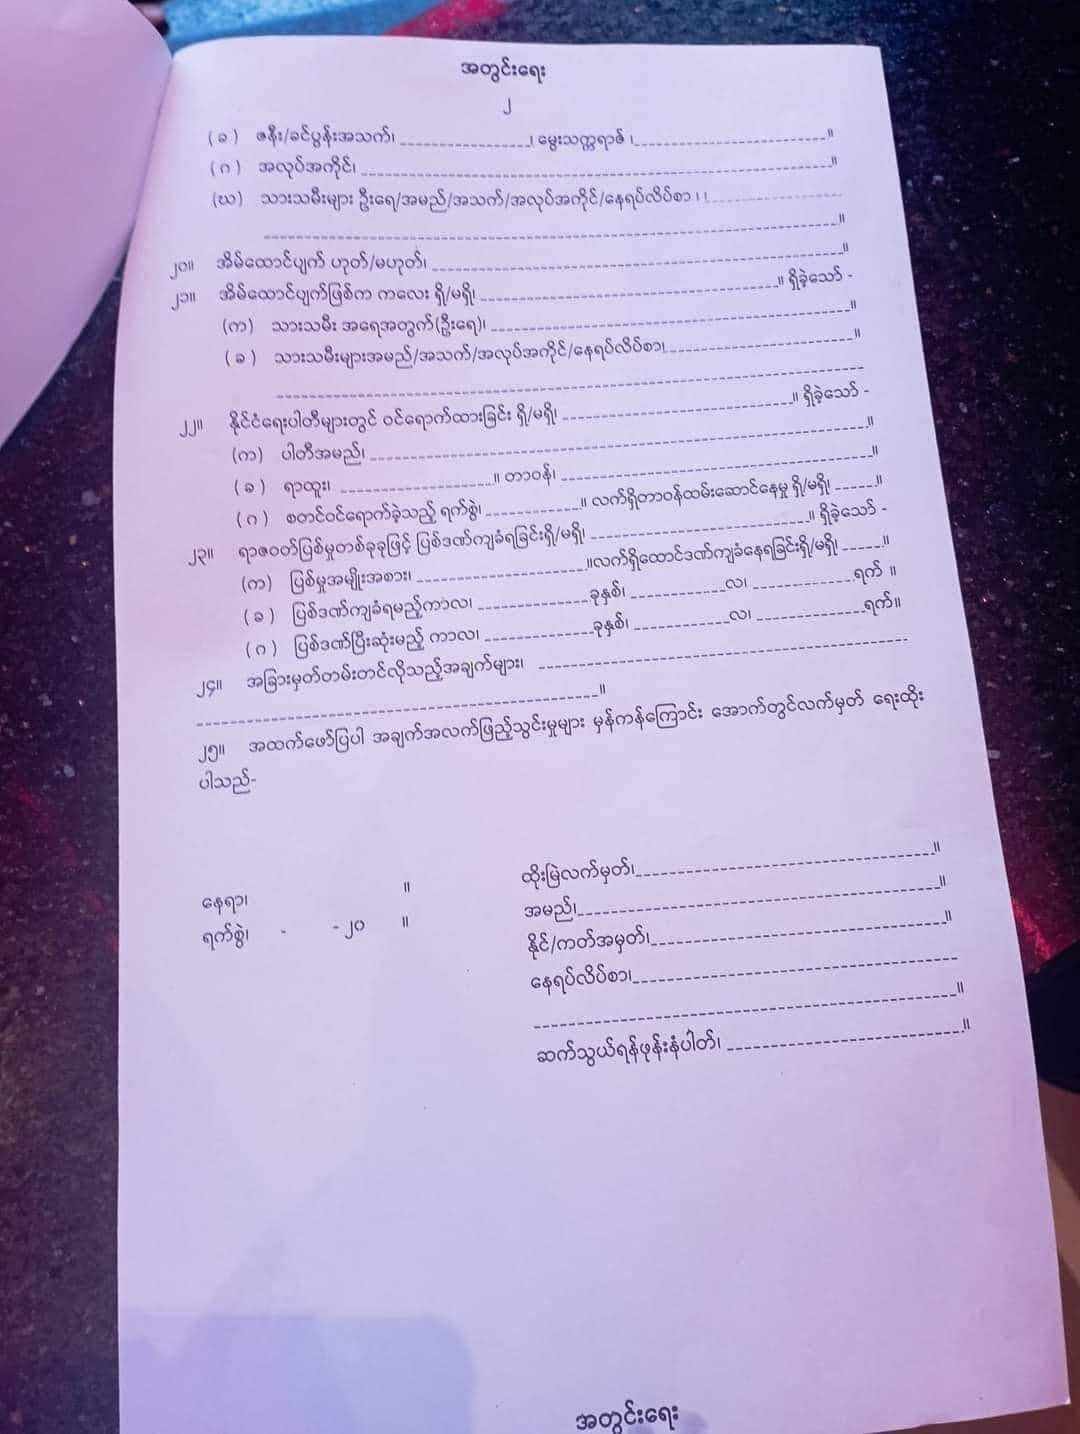 အတွင်းရေး
၂
(ခ) ဇနီး/ခင်ပွန်းအသက်၊ ---------------၊ မွေးသက္ကရာဇ်၊ ------------------------။
(ဂ) အလုပ်အကိုင်၊ ------------------------------------------------။
(ဃ) သားသမီးများ ဦးရေ/အမည်/အသက်/အလုပ်အကိုင်/နေရပ်လိပ်စာ ၊ ၊ ----------------
----------------------------------------------------------------။
၂၀။ အိမ်ထောင်ပျက် ဟုတ်/မဟုတ်၊ ------------------------------------------။
၂၁။ အိမ်ထောင်ပျက်ဖြစ်က ကလေး ရှိ/မရှိ၊ ------------------------------။ ရှိခဲ့သော် -
(က) သားသမီး အရေအတွက်(ဦးရေ)၊ ------------------------------------။
(ခ) သားသမီးများအမည်/အသက်/အလုပ်အကိုင်/နေရပ်လိပ်စာ၊------------------။
----------------------------------------------------------------
၂၂။ နိုင်ငံရေးပါတီများတွင် ဝင်ရောက်ထားခြင်း ရှိ/မရှိ၊ ------------------------။ ရှိခဲ့သော် -
(က) ပါတီအမည်၊ --------------------------------------------------။
(ခ) ရာထူး၊ ----------------။ တာဝန်၊ --------------------------------။
(ဂ) စတင်ဝင်ရောက်ခဲ့သည့် ရက်စွဲ၊ ----------။ လက်ရှိတာဝန်ထမ်းဆောင်နေမှု ရှိ/မရှိ၊ ------။
၂၃။ ရာဇဝတ်ပြစ်မှုတစ်ခုခုဖြင့် ပြစ်ဒဏ်ကျခံရခြင်းရှိ/မရှိ၊ ------------------------။ ရှိခဲ့သော် -
(က) ပြစ်မှုအမျိုးအစား၊ ------------------။လက်ရှိထောင်ဒဏ်ကျခံနေရခြင်းရှိ/မရှိ၊ ------။
(ခ) ပြစ်ဒဏ်ကျခံရမည့်ကာလ၊ ------------ခုနှစ်၊ ----------လ၊ ----------ရက် ။
(ဂ) ပြစ်ဒဏ်ပြီးဆုံးမည့် ကာလ၊ ------------ခုနှစ်၊ ----------လ၊ ------------ရက်။
၂၄။ အခြားမှတ်တမ်းတင်လိုသည့်အချက်များ၊ ------------------------------------
------------------------------------------။
၂၅။ အထက်ဖော်ပြပါ အချက်အလက်ဖြည့်သွင်းမှုများ မှန်ကန်ကြောင်း အောက်တွင်လက်မှတ် ရေးထိုး
ပါသည်-
ထိုးမြဲလက်မှတ်၊--------------------------------။
နေရာ၊ ။
အမည်၊----------------------------------------။
ရက်စွဲ၊ - -၂၀ ။
နိုင်/ကတ်အမှတ်၊--------------------------------။
နေရပ်လိပ်စာ၊----------------------------------
--------------------------------------------။
ဆက်သွယ်ရန်ဖုန်းနံပါတ်၊ ------------------------။
အတွင်းရေး